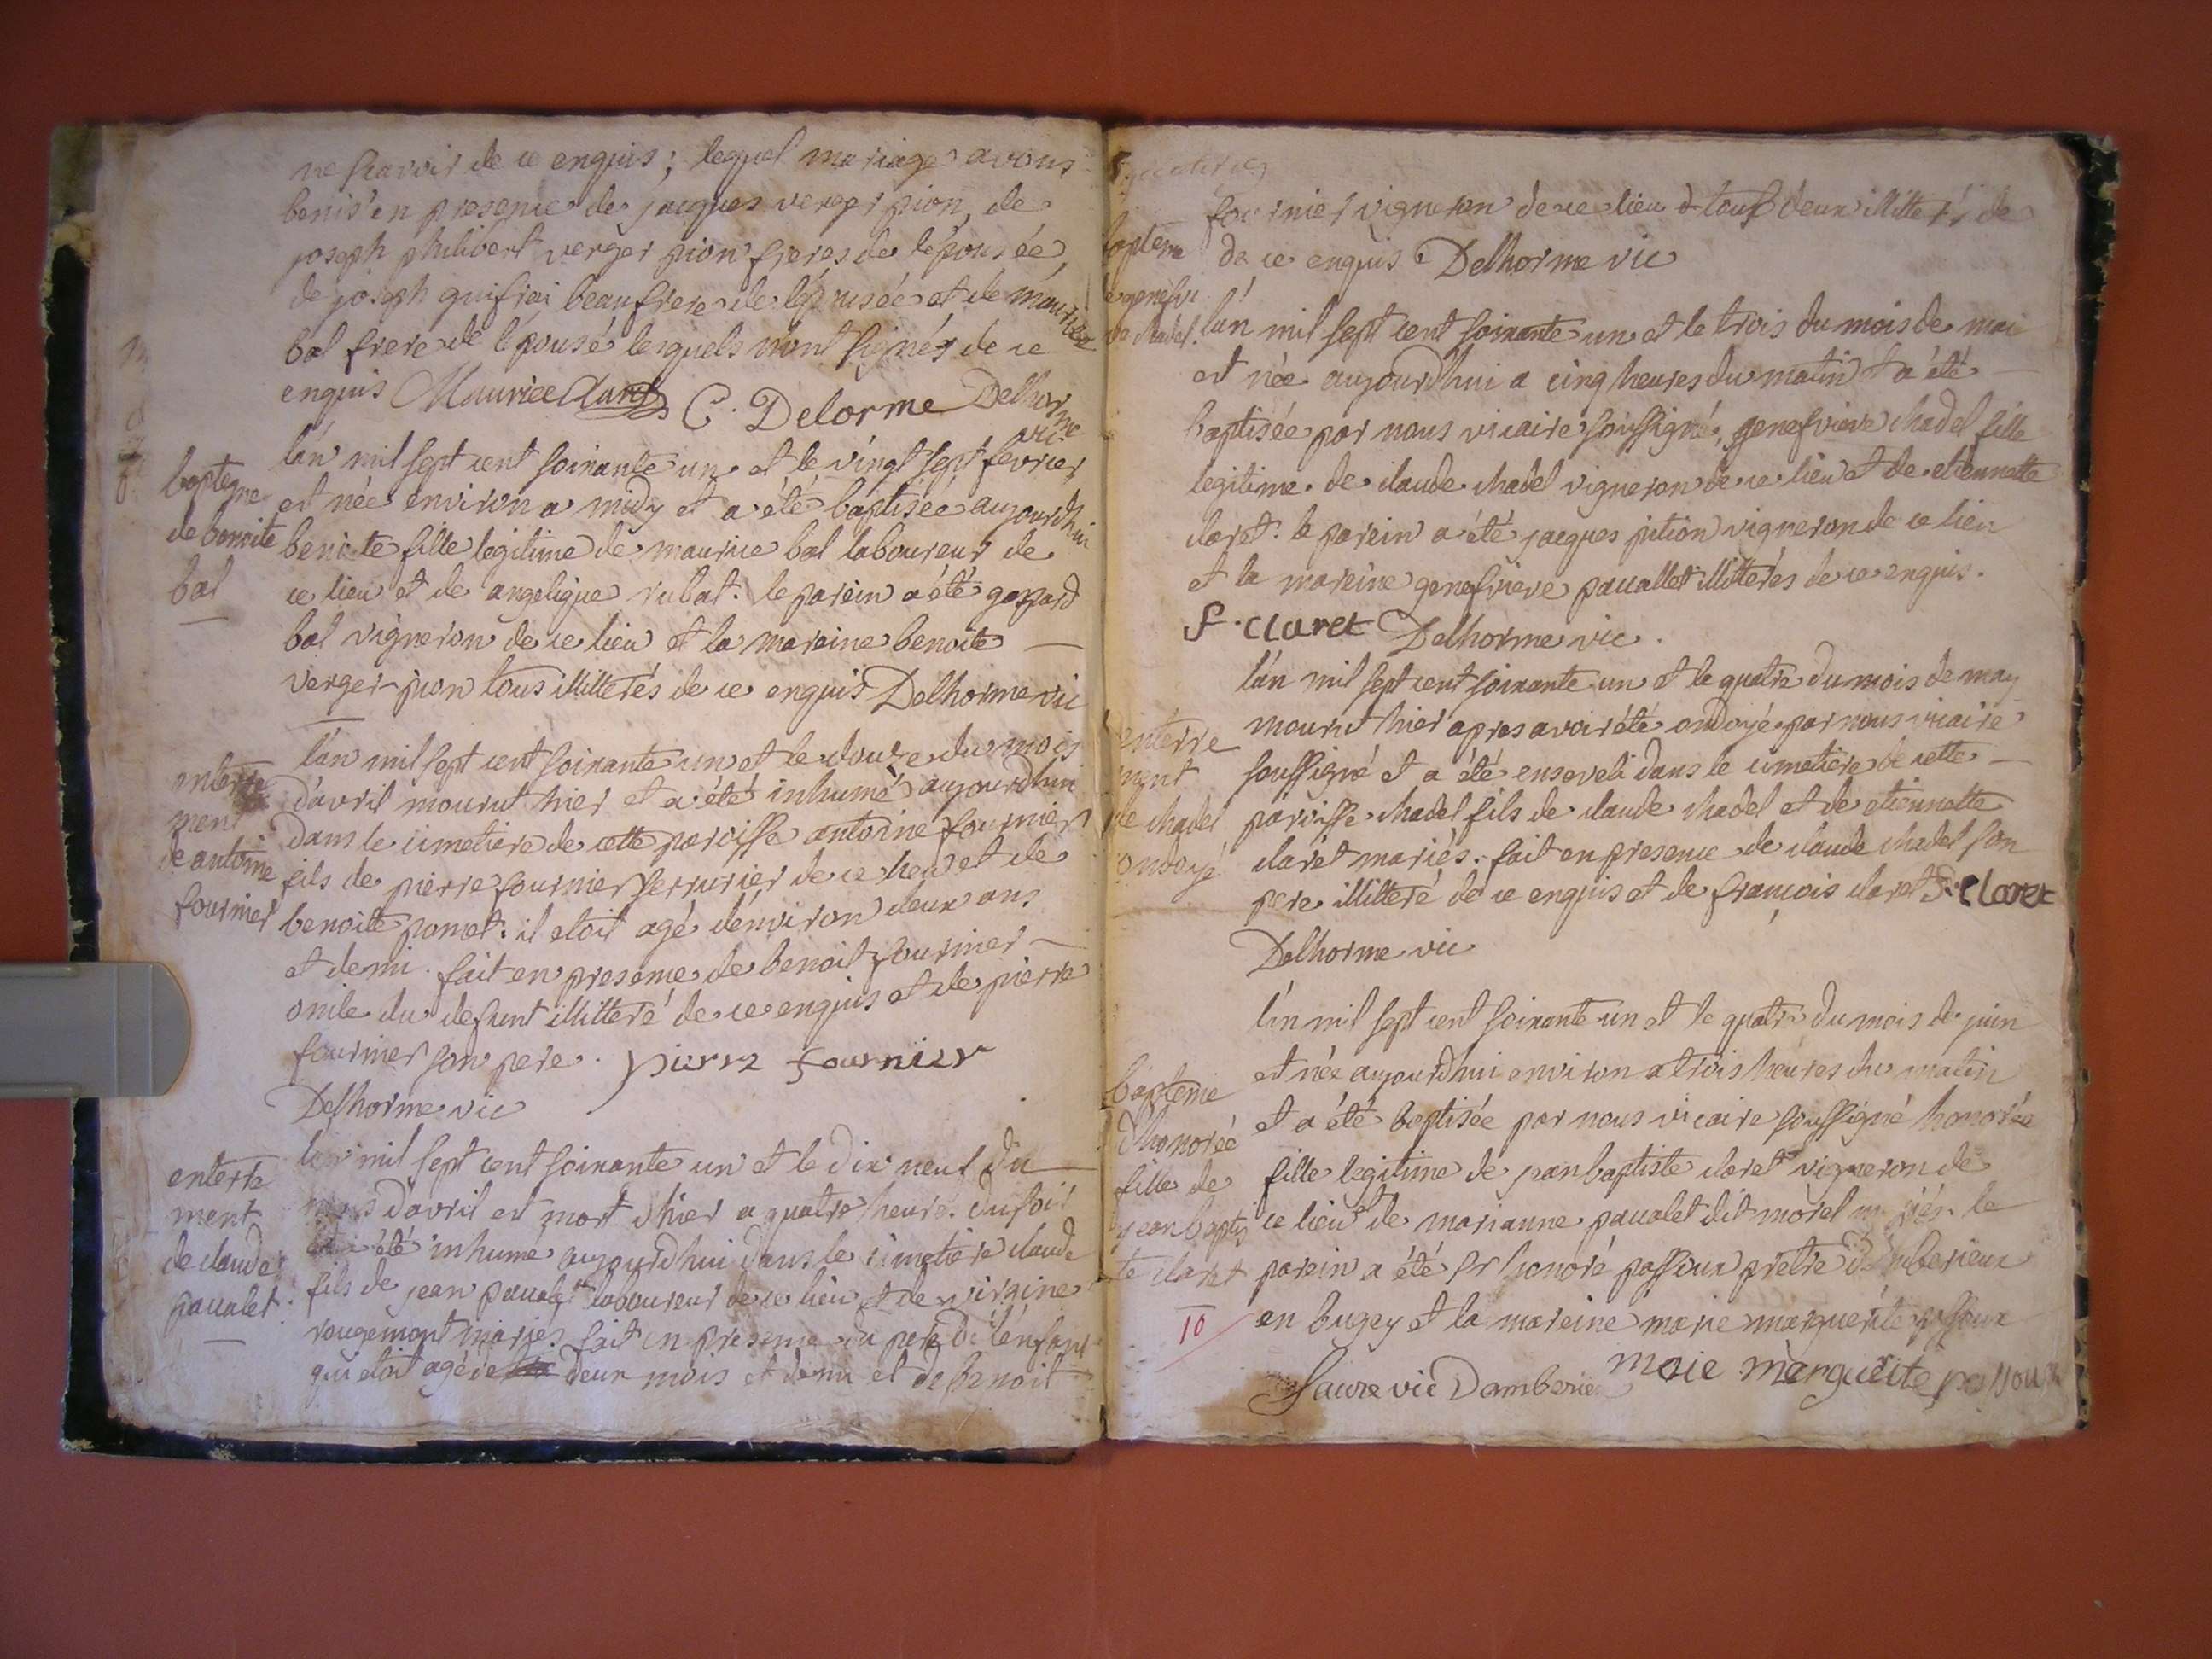 ne scavoir de ce enquis; lequel mariage avons
benis en presence de jacques verger pion, de
joseph philibert verger pion freres de lépousée,
de joseph guifrai beaufrere de lépousée et de maurice
bal frere de l'épousé lesquels n'ont signés de ce
enquis Maurice C. Delorme Delhorme
vic.
baptesme
de benoite
bal
lán mil sept cent soixante un et le vingt sept fevrier
est née environ a midy et a été baptisée aujourdhui
benoite fille legitime de maurice bal laboureur de
ce lieu et de angelique rubat. le parein a été gaspard
bal vigneron de ce lieu et la mareine benoite
verger-pion tous illitterés de ce enquis Delhorme vic
enterre
ment
de antoine
fournier
lán mil sept cent soixante un et le douze du mois
d'avril mourut hier et a été inhumé aujourdhui
dans le cimetiere de cette paroisse antoine fournier
fils de pierre fournier serrurier de ce lieu et de
benoite pomet. il etoit agé d'environ deux ans
et demi. fait en presence de benoit fournier
oncle du defunt illitteré de ce enquis et de pierre
fournier son pere. pierre fournier
Delhorme vic
enterre
ment
de claude
paualet.
lán mil sept cent soixante un et le dix neuf du
mois d'avril est mort d'hier a quatre heures du soir
et a été inhumé aujourdhui dans le cimetiere claude
fils de jean paualet laboureur de ce lieu et de virgine
rougemont mariés. fait en presence du pere de l'énfant
qui etoit agé de deux mois et demi et de benoit
fournier vigneron de ce lieu et tous deux illitterés de
de ce enquis Delhorme vic
bapteme
de genefvi
eve chadel.
lán mil sept cent soixante un et le trois du mois de mai
est née aujourdhui a cinq heures du matin et a été
baptisée par nous vicaire soussigné, genefvieve chadel fille
legitime de claude chadel vigneron de ce lieu et de etiennette
claret. le parein a été jacques pition vigneron de ce lieu
et la mareine genefvieve pauallet illitterés de ce enquis.
f. claret Delhorme vic.
enterre
ment
de chadel
ondoyé
lán mil sept cent soixante un et le quatre du mois de may
mourut hier apres avoir été ondoyé par nous vicaire
soussigné et a été enseveli dans le cimetiere de cette
paroisse chadel fils de claude chadel et de etiennette
claret mariés. fait en presence de claude chadel son
pere illitteré de ce enquis et de françois claret f. claret
Delhorme vic
bapteme
d'honorée
fille de
jean baptis
te claret
lán mil sept cent soixante un et le quatre du mois de juin
est née aujourdhui environ a trois heures du matin
et a été baptisée par nous vicaire soussigné honorée
fille legitime de jean baptiste claret vigneron de
ce lieu et de marianne paualet dit morel mariés. le
parein a été Sr honoré passoux prêtre d'Amberieux
en bugey et la mareine marie marguerite passoux
maie marguerite passoux
vic Damberieu
10